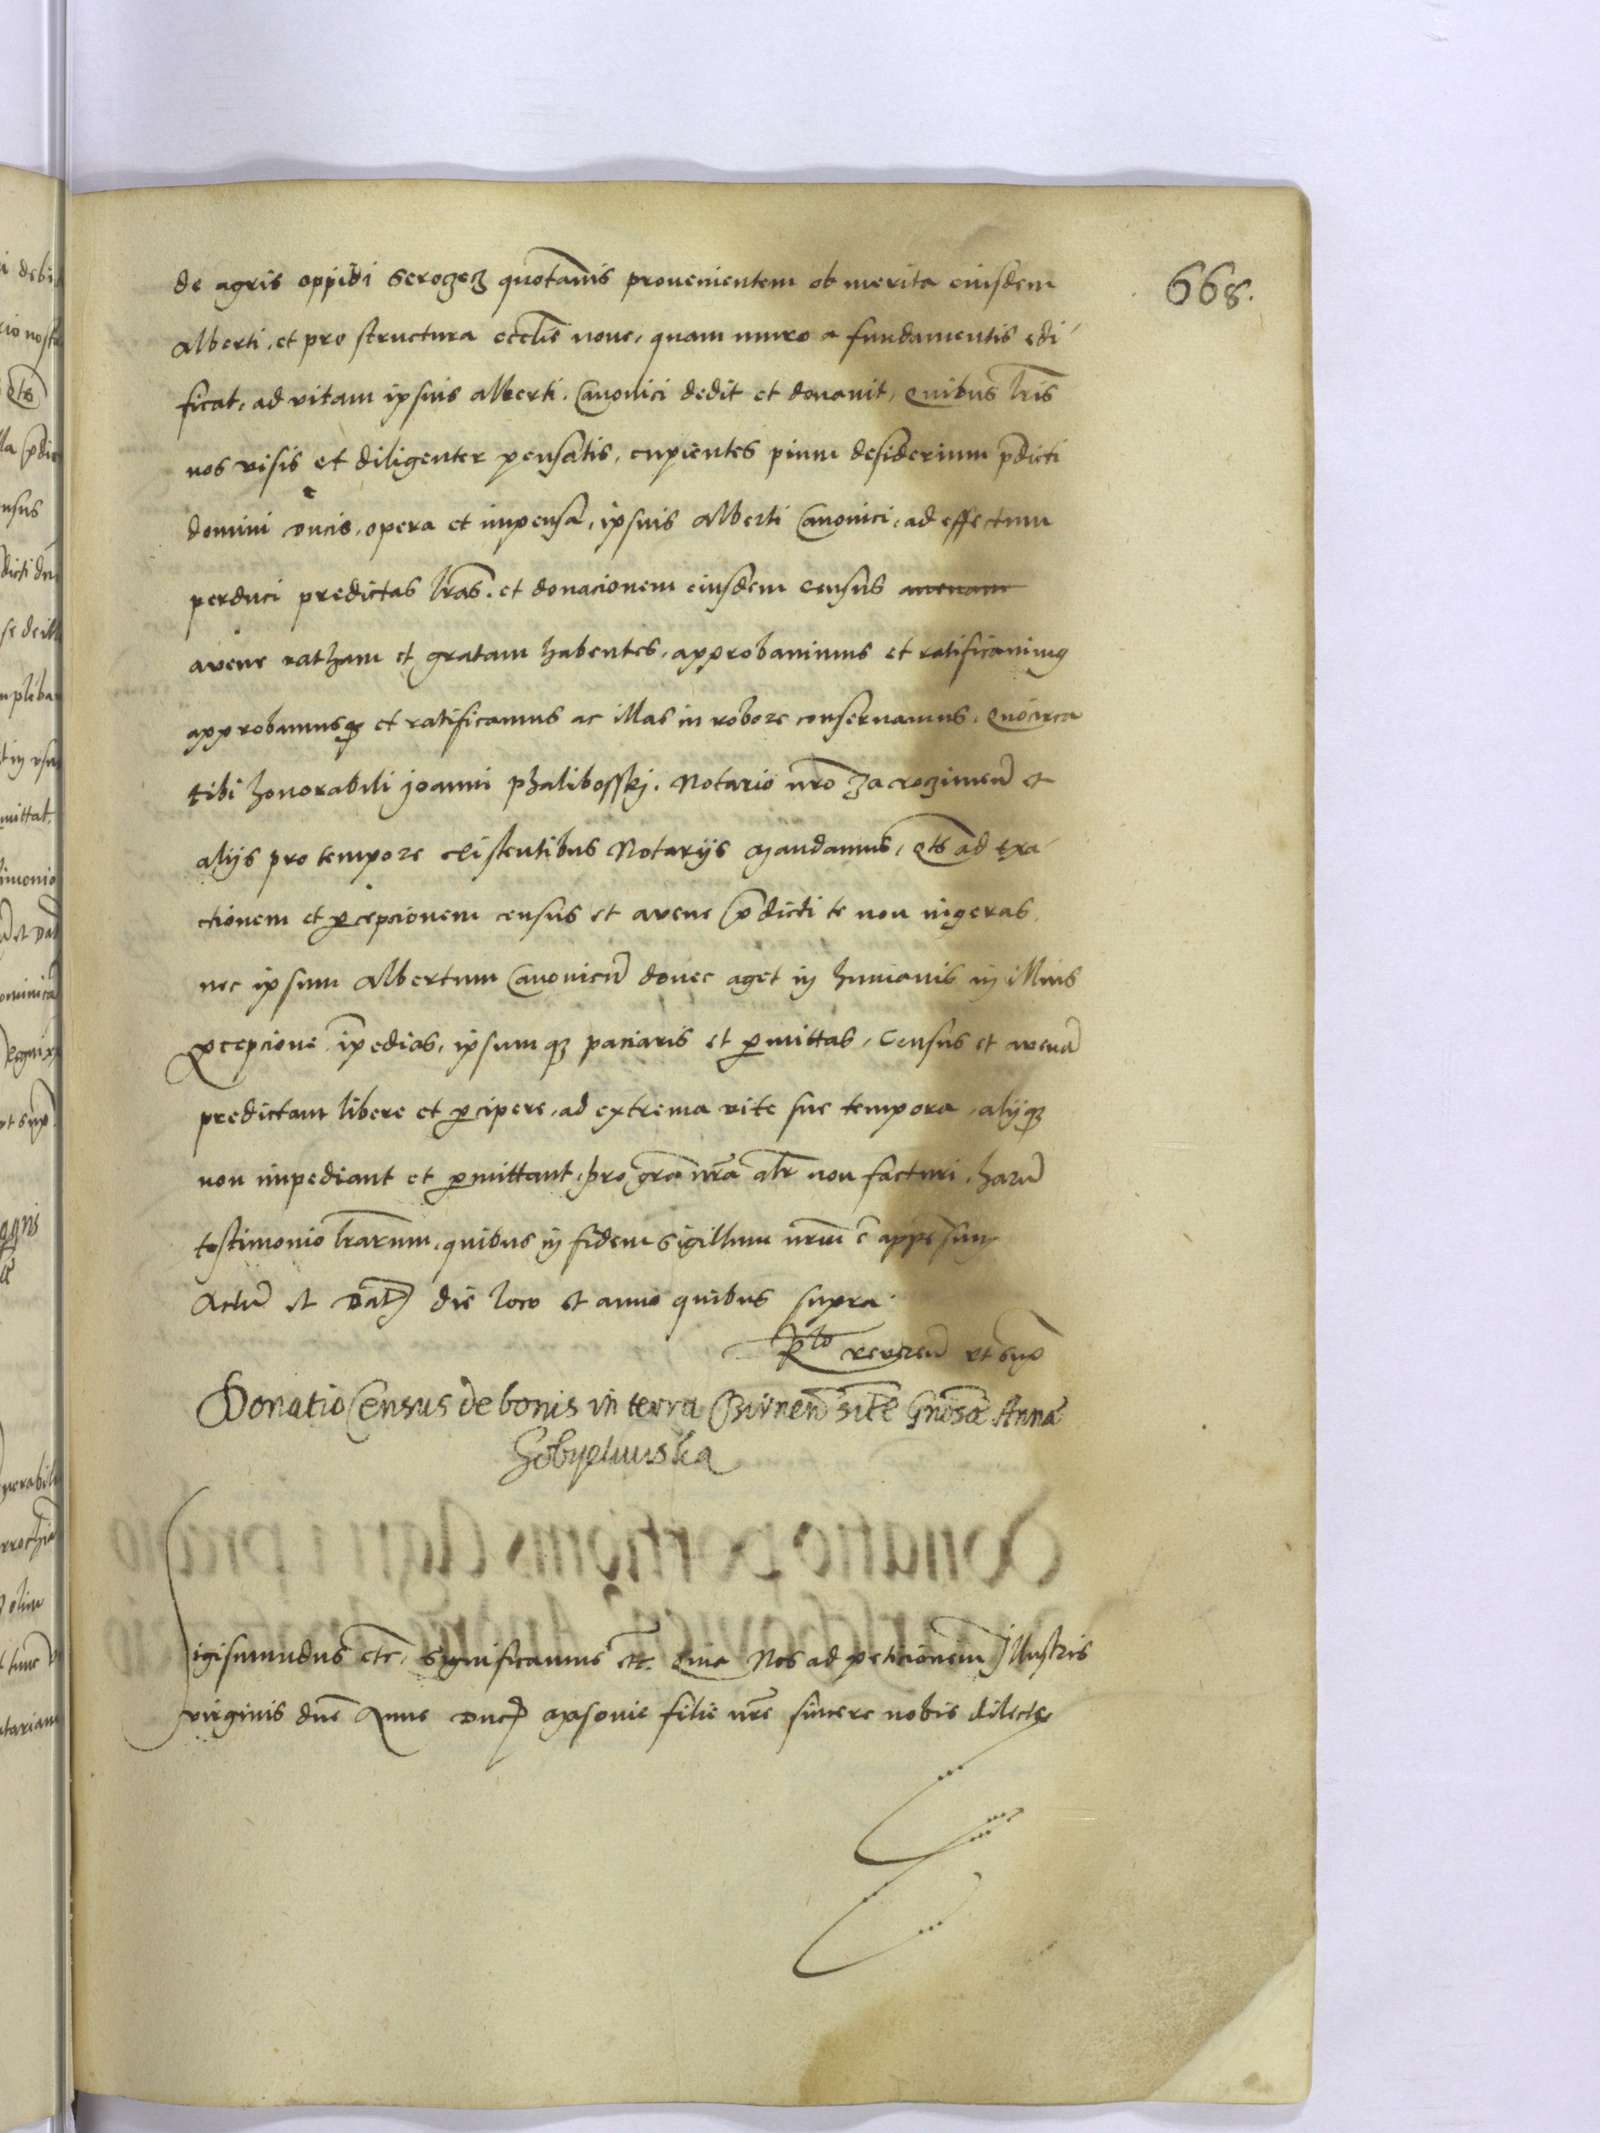 668.
de agris oppidi Seroczecz quotannis prouenientem ob merita eiusdem
Alberti, et pro structura eccl̄ie noue, quam muro a fundamentis edi
ficat, ad vitam ipsius Alberti Canonici dedit et donauit, Quibus lr̄is
nos visis et diligenter pensatis, cupientes pium desiderium p̄dicti
domini Ducis, opera et impensa, ipsius Alberti Canonici, ad effectum
perduci predictas lr̄as, et donacionem eiusdem census auenam
avene ratham et gratam habentes, approbauimus et ratificauimus
approbamusq̨ et ratificamus ac illas in robore conseruamus. Quocirca
tibi honorabili Joanni Phalibosskj. Notario nr̄o Zacrozimen̄ et
alijs pro tempore existentibus Notarijs Mandamus, q̄ts ad exa
ctionem et ꝑcepcionem census et avene p̄dicti te non ingeras,
nec ipsum Albertum Canonicū donec aget in humanis in illius
ꝑcepcione īpedias, ipsumq̨ paciaris et ꝑmittas, Census et avenā
predictam libere et ꝑcipere, ad extrema vite sue tempora, alijq̨
non impediant et ꝑmittant, pro gr̄a nr̄a al̄r non facturi, harū
testimonio lr̄arum, quibus in fidem sigillum nr̄um ē appensum
Actū et Dat̄ die loco et anno quibus supra
R̄lo reveren̄ vt sup̄
Donatio Census de bonis in terra Vivnen̄ site Gn̄ose Anne
Sigismundus etc̄, Significamus etc̄. Quia Nos ad peticionem Illustris
virginis dn̄e Anne Duc̄ Masouie filie nr̄e sincere nobis dilecte